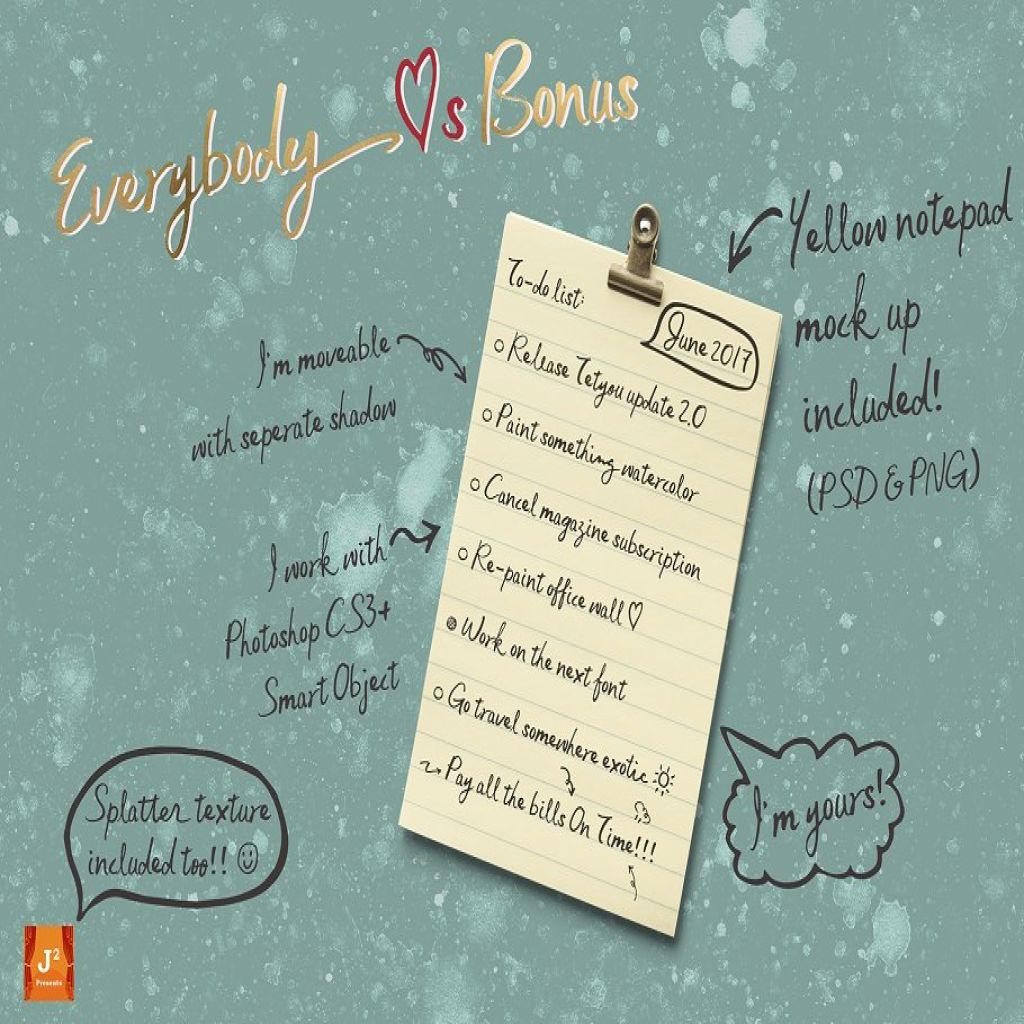 Everybody ♥s Bonus
Yellow notepad
mock up
included!
(PSD & PNG)
I'm moveable
with seperate shadow
I work with
Photoshop CS3+
Smart Object
To-do list:
June 2017
Release Tetyou update 2.0
Paint something watercolor
Cancel magazine subscription
Re-paint office wall♡
Work on the next font
Go travel somewhere exotic
Pay all the bills On Time!!!
I'm yours!
Splatter texture
included too!! ☺
J²
Presents